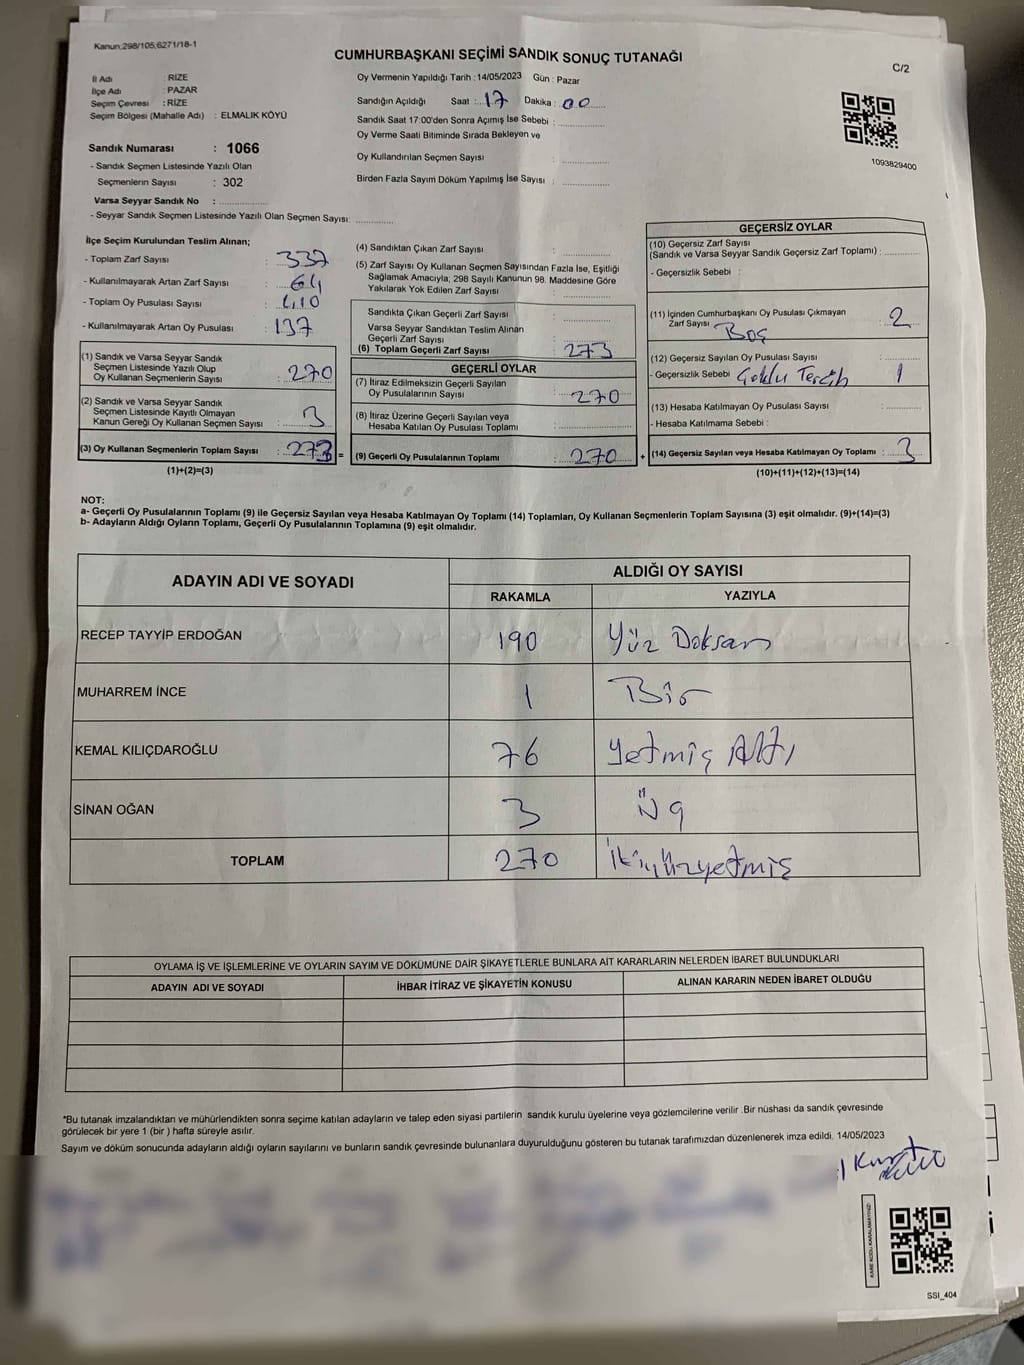 Kanun;298/105;6271/18-1
CUMHURBAŞKANI SEÇİMİ SANDIK SONUÇ TUTANAĞI
C/2
İl Adı : RİZE
İlçe Adı : PAZAR
Seçim Çevresi : RİZE
Seçim Bölgesi (Mahalle Adı) : ELMALIK KÖYÜ
Sandık Numarası : 1066
- Sandık Seçmen Listesinde Yazılı Olan
Seçmenlerin Sayısı : 302
Varsa Seyyar Sandık No :
- Seyyar Sandık Seçmen Listesinde Yazılı Olan Seçmen Sayısı:
Oy Vermenin Yapıldığı Tarih : 14/05/2023 Gün : Pazar
Sandığın Açıldığı Saat : 17 Dakika : 00
Sandık Saat 17:00'den Sonra Açımış İse Sebebi :
Oy Verme Saati Bitiminde Sırada Bekleyen ve
Oy Kullandırılan Seçmen Sayısı :
Birden Fazla Sayım Döküm Yapılmış İse Sayısı :
1093829400
İlçe Seçim Kurulundan Teslim Alınan;
- Toplam Zarf Sayısı : 337
- Kullanılmayarak Artan Zarf Sayısı : 64
- Toplam Oy Pusulası Sayısı : 410
- Kullanılmayarak Artan Oy Pusulası : 137
(1) Sandık ve Varsa Seyyar Sandık
Seçmen Listesinde Yazılı Olup
Oy Kullanan Seçmenlerin Sayısı : 270
(2) Sandık ve Varsa Seyyar Sandık
Seçmen Listesinde Kayıtlı Olmayan
Kanun Gereği Oy Kullanan Seçmen Sayısı : 3
(3) Oy Kullanan Seçmenlerin Toplam Sayısı : 273 =
(1)+(2)=(3)
(4) Sandıktan Çıkan Zarf Sayısı :
(5) Zarf Sayısı Oy Kullanan Seçmen Sayısından Fazla İse, Eşitliği
Sağlamak Amacıyla; 298 Sayılı Kanunun 98. Maddesine Göre
Yakılarak Yok Edilen Zarf Sayısı :
Sandıkta Çıkan Geçerli Zarf Sayısı :
Varsa Seyyar Sandıktan Teslim Alınan
Geçerli Zarf Sayısı :
(6) Toplam Geçerli Zarf Sayısı : 273
GEÇERLİ OYLAR
(7) İtiraz Edilmeksizin Geçerli Sayılan
Oy Pusulalarının Sayısı : 270
(8) İtiraz Üzerine Geçerli Sayılan veya
Hesaba Katılan Oy Pusulası Toplamı :
(9) Geçerli Oy Pusulalarının Toplamı : 270 +
GEÇERSİZ OYLAR
(10) Geçersiz Zarf Sayısı
(Sandık ve Varsa Seyyar Sandık Geçersiz Zarf Toplamı) :
- Geçersizlik Sebebi :
(11) İçinden Cumhurbaşkanı Oy Pusulası Çıkmayan
Zarf Sayısı : 2
Boş
(12) Geçersiz Sayılan Oy Pusulası Sayısı :
- Geçersizlik Sebebi Çoklu Tercih 1
(13) Hesaba Katılmayan Oy Pusulası Sayısı :
- Hesaba Katılmama Sebebi :
(14) Geçersiz Sayılan veya Hesaba Katılmayan Oy Toplamı : 3
(10)+(11)+(12)+(13)=(14)
NOT:
a- Geçerli Oy Pusulalarının Toplamı (9) ile Geçersiz Sayılan veya Hesaba Katılmayan Oy Toplamı (14) Toplamları, Oy Kullanan Seçmenlerin Toplam Sayısına (3) eşit olmalıdır. (9)+(14)=(3)
b- Adayların Aldığı Oyların Toplamı, Geçerli Oy Pusulalarının Toplamına (9) eşit olmalıdır.
ADAYIN ADI VE SOYADI
ALDIĞI OY SAYISI
RAKAMLA YAZIYLA
RECEP TAYYİP ERDOĞAN 190 Yüz Doksan
MUHARREM İNCE 1 Bir
KEMAL KILIÇDAROĞLU 76 Yetmiş Altı
SİNAN OĞAN 3 Üç
TOPLAM 270 İkiyüzyetmiş
OYLAMA İŞ VE İŞLEMLERİNE VE OYLARIN SAYIM VE DÖKÜMÜNE DAİR ŞİKAYETLERLE BUNLARA AİT KARARLARIN NELERDEN İBARET BULUNDUKLARI
ADAYIN ADI VE SOYADI İHBAR İTİRAZ VE ŞİKAYETİN KONUSU ALINAN KARARIN NEDEN İBARET OLDUĞU
*Bu tutanak imzalandıktan ve mühürlendikten sonra seçime katılan adayların ve talep eden siyasi partilerin sandık kurulu üyelerine veya gözlemcilerine verilir .Bir nüshası da sandık çevresinde
görülecek bir yere 1 (bir ) hafta süreyle asılır.
Sayım ve döküm sonucunda adayların aldığı oyların sayılarını ve bunların sandık çevresinde bulunanlara duyurulduğunu gösteren bu tutanak tarafımızdan düzenlenerek imza edildi. 14/05/2023
KARE KODU KARALAMAYINIZ!
SSI_404